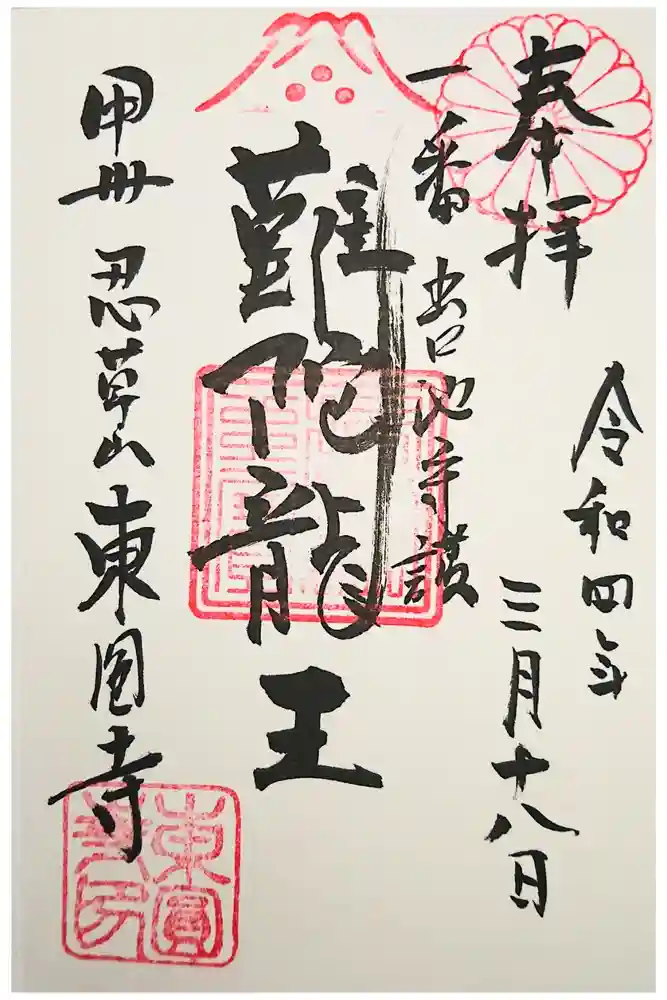 奉拝
令和四年
三月十八日
一番 出口池守護
難陀龍王
甲州 忍草山 東圓寺
東圓